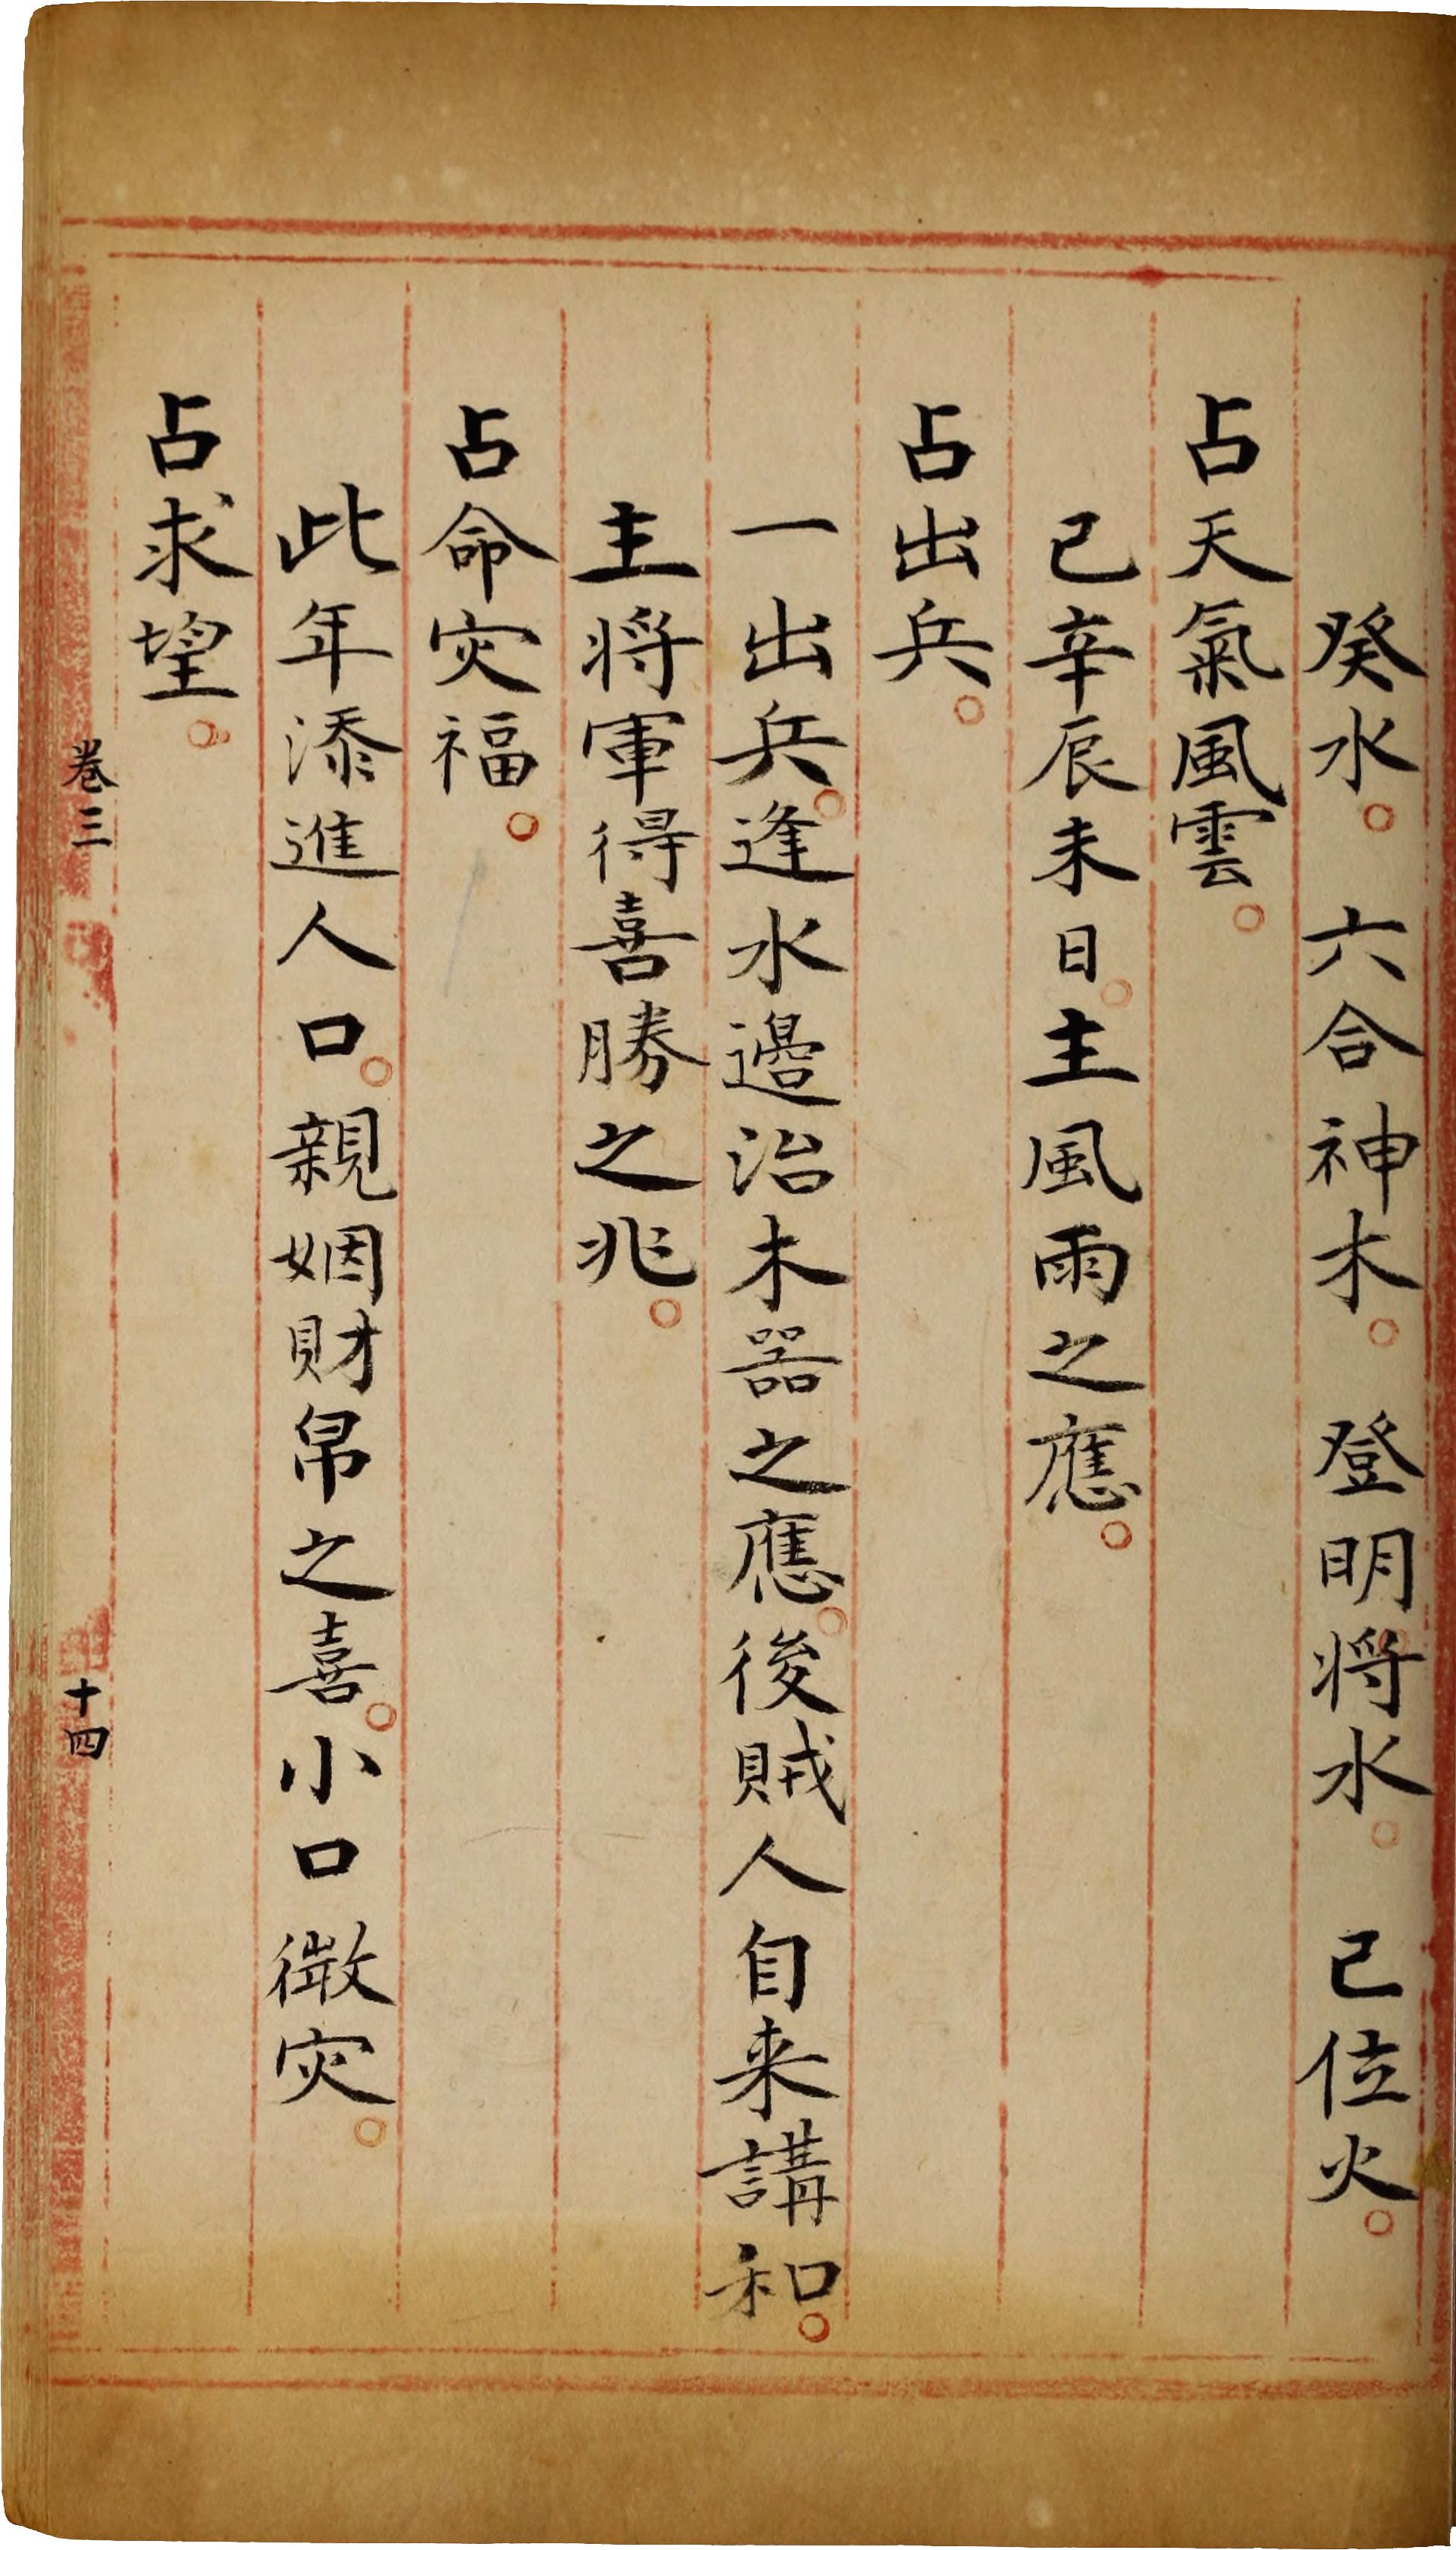 癸水。六合神木。登明將水。已位火。
占天氣風雲。
已辛辰未日。主風雨之應。
占出兵。
一出兵。逢水邉治木器之應。後賊人自来講和。
主將軍得喜勝之兆。
占命灾福。
此年添進人口。親姻財帛之喜。小口微灾。
占求望。
卷三
十四